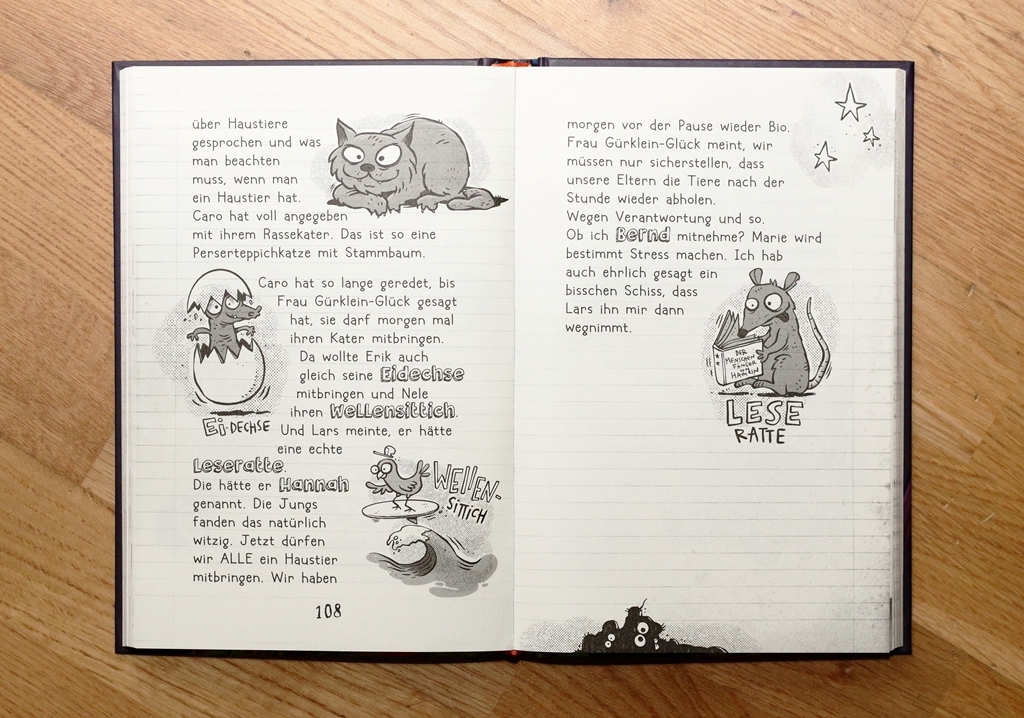 über Haustiere
gesprochen und was
man beachten
muss, wenn man
ein Haustier hat.
Caro hat voll angegeben
mit ihrem Rassekater. Das ist so eine
Perserteppichkatze mit Stammbaum.
Caro hat so lange geredet, bis
Frau Gürklein-Glück gesagt
hat, sie darf morgen mal
ihren Kater mitbringen.
Da wollte Erik auch
gleich seine Eidechse
mitbringen und Nele
ihren Wellensittich.
Und Lars meinte, er hätte
eine echte
Leseratte.
Die hätte er Hannah
genannt. Die Jungs
fanden das natürlich
witzig. Jetzt dürfen
wir ALLE ein Haustier
mitbringen. Wir haben
Ei-DECHSE
WELLEN-
SITTICH
108
morgen vor der Pause wieder Bio.
Frau Gürklein-Glück meint, wir
müssen nur sicherstellen, dass
unsere Eltern die Tiere nach der
Stunde wieder abholen.
Wegen Verantwortung und so.
Ob ich Bernd mitnehme? Marie wird
bestimmt Stress machen. Ich hab
auch ehrlich gesagt ein
bisschen Schiss, dass
Lars ihn mir dann
wegnimmt.
DER
MENSCHEN
FÄNGER
VON
HAMELN
LESE
RATTE